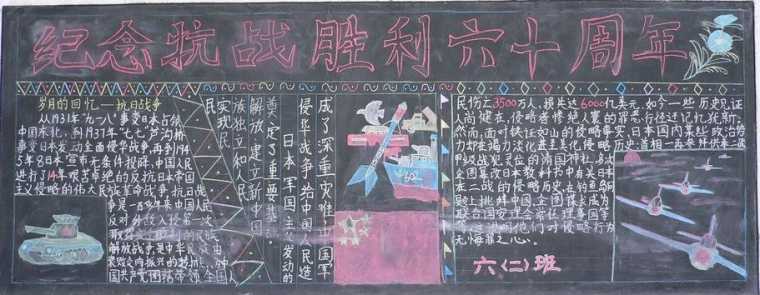 纪念抗战胜利六十周年
岁月的回忆——抗日战争
从1931年"九一八"事变日本占领
中国东北,到1937年"七七"芦沟桥
事变日本发动全面侵华战争,再到194
5年8日本宣布无条件投降,中国人民
进行了14年艰苦卓绝的反抗日本帝国
主义侵略的伟大民族革命战争.抗日战
争是一百多年来中国人民
反对外敌入侵第一次
取得完全胜利的民族
解放战争,是中华民族由
衰败走向振兴的
国共产党团结带领全国人
民
实现民
族独立和人民
解放,建立新中国
奠定了重要基础.
日本军国主义发动的
侵华战争给中国人民造
成了深重灾难,中国军
民伤亡3500万人,损失达6000亿美元.如今一些历史见证
人尚健在,侵略者惨绝人寰的罪恶行径记忆犹新.
然而,面对铁证如山的侵略事实,日本国内某些政治势
力却在竭力淡化甚至美化侵略历史:首相一再参拜供奉二战
甲级战犯灵位的靖国神社,多次
企图篡改日本教科书中有关日本
在二战的侵略历史,在钓鱼岛问
题上挑衅中国,企图谋求成为
联合国安理会常任理事国等
等,这说明他们对侵略行为
无悔罪之心.
六〈二〉班